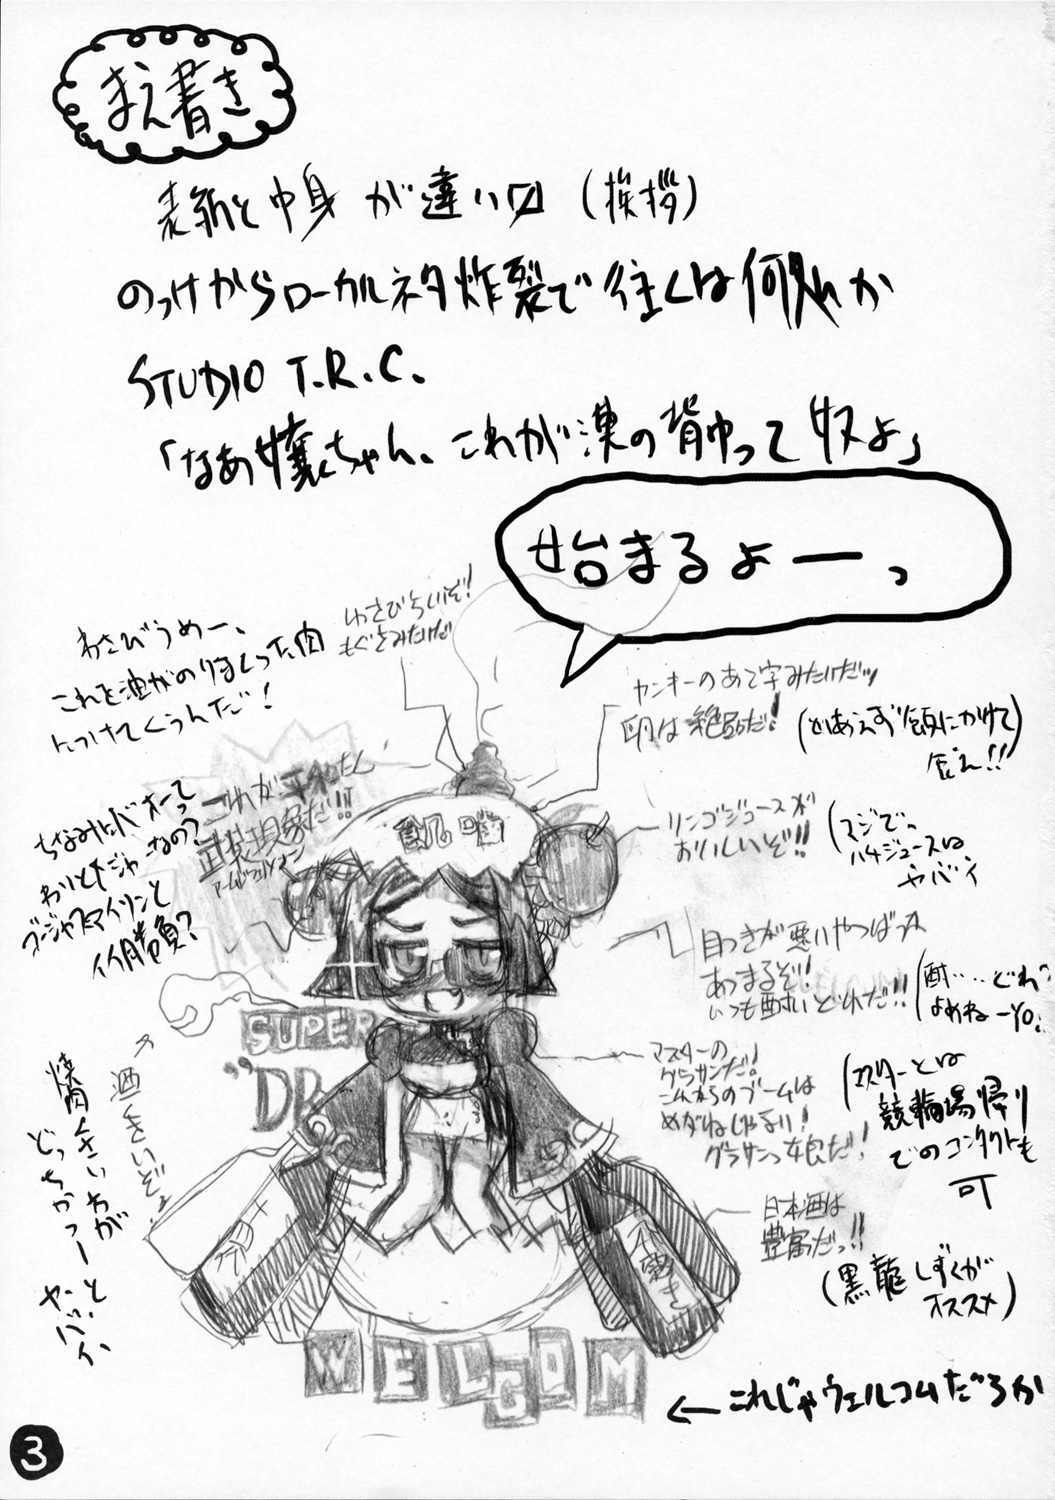 まえ書き
表紙と中身が違い〼(挨拶)
のっけからローカルネタ炸裂で往くは何処か
STUDIO T.R.C.
「なあ嬢ちゃん、これが漢の背中って奴よ」
始まるよーっ
わさびらいいぞ!
もぐさみたいだ
わさびうめー、
これを油がのりまくった肉
につけてくうんだ!
ヤンキーのあて字みたいだッ
卵は絶品だ!
(とりあえず飯にかけて
食え!!)
これが平和たん
武装現象だ!!
ちなみにバオーって
わりとメジャーなの?
リンゴジュースが
おいしいぞ!!
ヤバイ
目つきが悪いやつばっか
あつまるぞ!
いつも酔いどれだ!!
(酔……どれ?
よめねーYO!
SUPER
マスターの
グラサンだ!
これからのブームは
めがねじゃない!
グラサンっ娘だ!
(マスターとは
競輪場帰り
でのコンタクトも
可
酒くさいぞ。
焼肉くさいわが
どっちかっつーと、
ヤバイ
日本酒は
豊富だっ!!
(黒龍しずくが
オススメ)
WELCOM
←これじゃウェルコムだろが
3